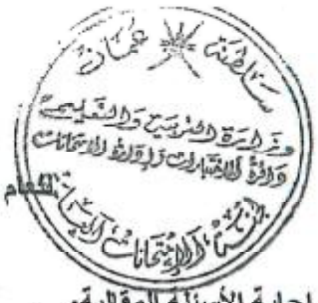 سلطنة عمان
وزارة التربية والتعليم
دائرة الاختبارات وإدارة الامتحانات
للعام
لجنة الامتحانات
إجابة الأسئلة المقالية